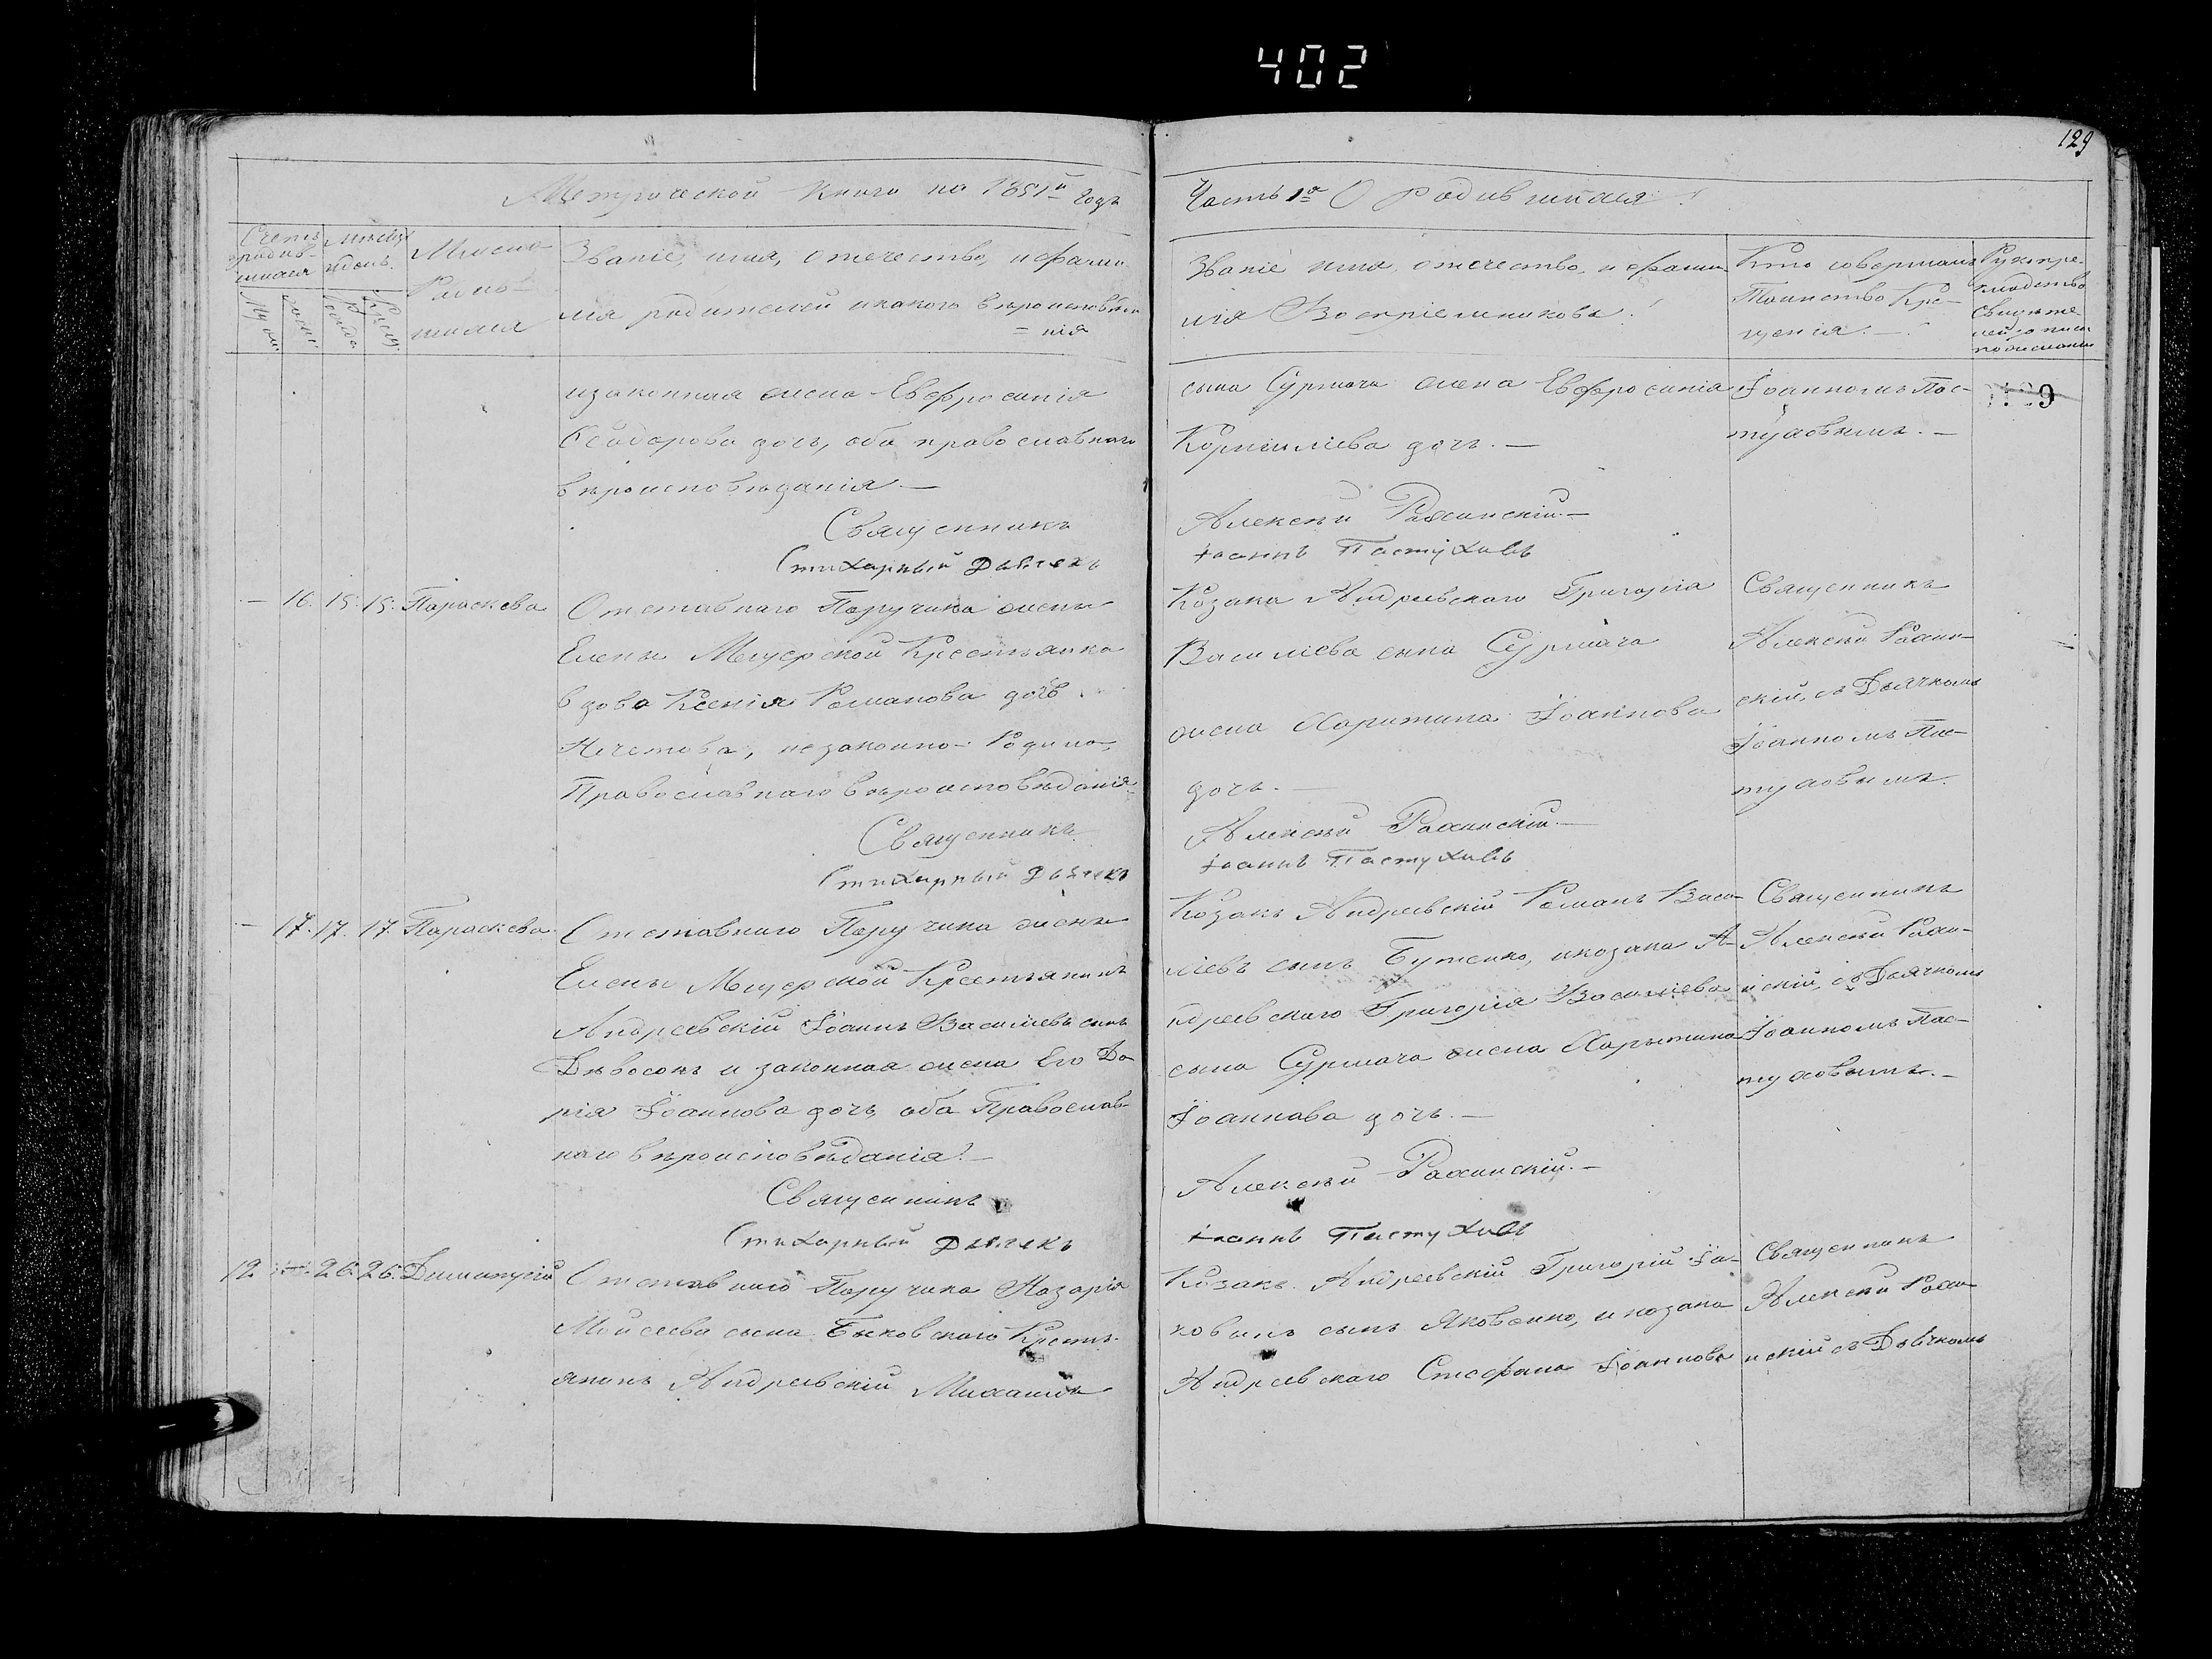 402
129
Метрической Книги на 1851й Годъ
Часть 1я О родившихся
Счетъ родив-шихся
Муж.
Женс.
Мѣсяцъ и день.
Рожде
Крещ.
Имена
Родив-
шихся
Званіе, имя, отечество, и фами
лія родителей и какого вѣроисповѣда
= нія
Званіе имя, отечество, и фами
лія Воспріемниковъ.
Кто совершалъ
Таинство Кре-
щенія.
Рукопри-
кладство
Свидѣте
лей
изаконная жена Евфросинія
Ѳеодорова дочь, оба православнаго
вѣроисповѣданія —
Священникъ
Стихарный Дьячекъ
сына Сурмача жена Евфросинія
Корниліева дочь. —
Алексѣй Рахинскій —
Іоаннъ Пастуховъ
Іоанномъ Пас-
туховымъ. —
129
— 16. 15. 15. Параскева
Отставнаго Поручика жены
Елены Мещерской Крестьянка
вдова Ксенія Романова дочь
незаконно-Родила,
Православнаго вѣроисповѣданія
Священникъ
Стихарный Дьячекъ
Козака Андреевскаго Григорія
Василіева сына Сурмача
жена Харитина Іоаннова
дочь. —
Алексѣй Рахинскій —
Іоаннъ Пастуховъ
Священникъ
Алексѣй Рахин-
скій, съ Дьячкомъ
Іоанномъ Пас-
туховымъ.
— 17. 17. 17. Параскева
Отставнаго Поручика жены
Елены Мещерской Крестьянинъ
Андреевскій Іоаннъ Василіевъ сынъ
и законная жена Его Да-
рія Іоаннова дочь, оба Православ-
наго вѣроисповѣданія —
Священникъ
Стихарный Дьячекъ
Козакъ Андреевскій Романъ Васи-
ліевъ сынъ Бутенко, икозака А-
ндреевскаго Григорія Василіева
сына Сурмача жена Харитина
Іоаннова дочь. —
Алексѣй Рахинскій. —
Іоаннъ Пастуховъ
Священникъ
Алексѣй Рахи-
нскій, съ Дьячкомъ
Іоанномъ Пас-
туховымъ. —
12 — 26. 26. Димитрій
Отставнаго Поручика Назарія
Моисеева сына Быковскаго Кресть-
янинъ Андреевскій Михаилъ
Козакъ Андреевскій Григорій Іа-
ковлевъ сынъ Яковенко, и козака
Андреевскаго Стефана Іоаннова
Священникъ
Алексѣй Рахи-
нскій съ Дьячкомъ